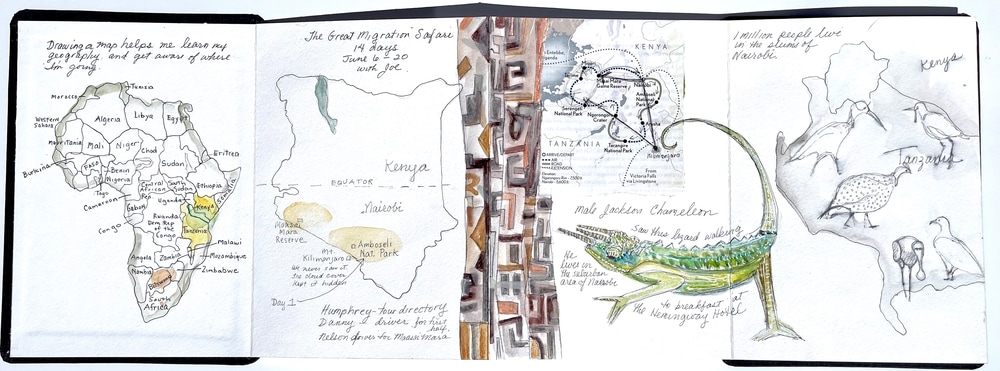 Drawing a map helps me learn my
geography and get aware of where
I'm going.
Tunisia
Morocco
Western
Sahara
Algeria
Libya
Egypt
Mauritania
Mali
Niger
Chad
Sudan
Eritrea
Burkina
Faso
Benin
Nigeria
Togo
Cameroon
Central
African
Rep.
South
Sudan
Ethiopia
Somalia
Gabon
Uganda
Kenya
Congo
Rwanda
Dem Rep
of the
Congo
Tanzania
Malawi
Angola
Zambia
Mozambique
Namibia
Zimbabwe
Botswana
South
Africa
The Great Migration Safari
14 days
June 6-20
with Joe
Kenya
EQUATOR
Nairobi
Maasai
Mara
Reserve
Mt.
Kilimanjaro
we never saw it
the cloud cover
kept it hidden
Amboseli
Nat. Park
Day 1
Humphrey - tour directory
Danny - driver for first
half
Nelson driver for Maasai Mara
KENYA
Entebbe,
Uganda
Masai Mara
Game Reserve
Nairobi
Amboseli
National
Park
Serengeti
National Park
Ngorongoro
Crater
Arusha
Tarangire
National Park
Kilimanjaro
TANZANIA
ARRIVE/DEPART
AIR
ROAD
EXTENSION
From
Victoria Falls
via Livingstone
Male Jackson Chameleon
Saw this lizard walking
He
lives in
the suburban
area of Nairobi
to breakfast at
the Hemingway Hotel
1 million people live
in the slums of
Nairobi.
Kenya
Tanzania